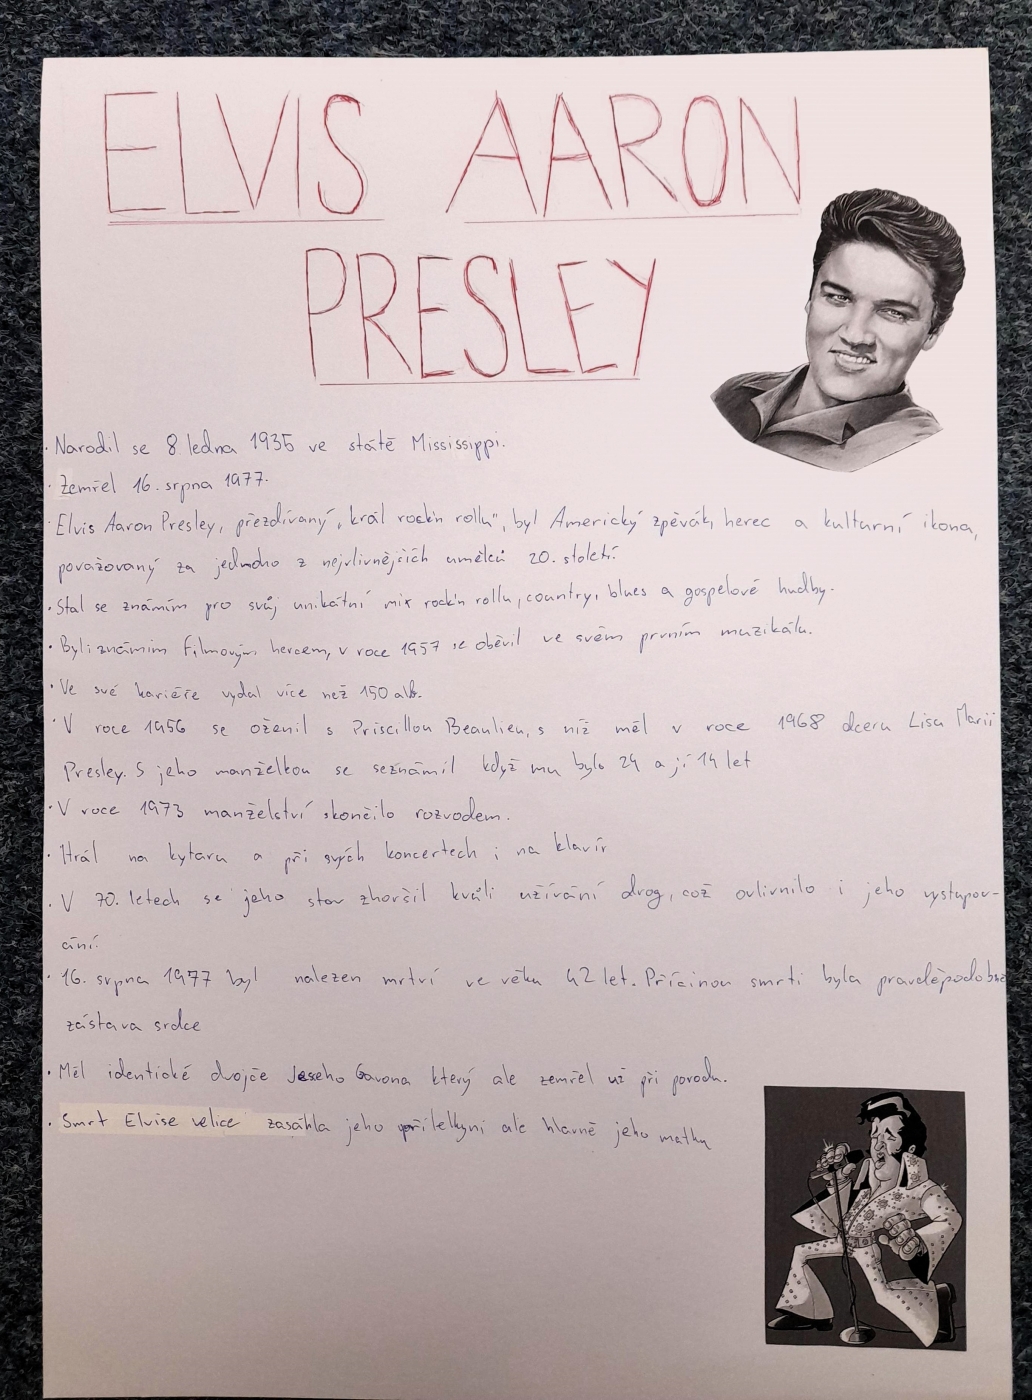 ELVIS AARON
PRESLEY
· Narodil se 8. ledna 1935 ve státě Mississippi.
· Zemřel 16. srpna 1977.
· Elvis Aaron Presley, přezdívaný „král rock'n rollu", byl Americký zpěvák, herec a kulturní ikona,
považovaný za jednoho z nejvlivnějších umělců 20. století.
· Stal se známím pro svůj unikátní mix rock'n rollu, country, blues a gospelové hudby.
· Byl i známim filmovým hercem, v roce 1957 se oběvil ve svém prvním muzikálu.
· Ve své kariéře vydal více než 150 alb.
· V roce 1956 se oženil s Priscillou Beaulieu, s níž měl v roce 1968 dceru Lisu Marii
Presley. S jeho manželkou se seznámil když mu bylo 24 a jí 14 let
· V roce 1973 manželství skončilo rozvodem.
· Hrál na kytaru a při svých koncertech i na klavír
· V 70. letech se jeho stav zhoršil kvůli užívání drog, což ovlivnilo i jeho vystupov-
ání.
· 16. srpna 1977 byl nalezen mrtví ve věku 42 let. Příčinou smrti byla pravděpodobně
zástava srdce
· Měl identické dvojče Jeseho Garona který ale zemřel už při porodu.
· Smrt Elvise velice zasáhla jeho přítelkyni ale hlavně jeho matku